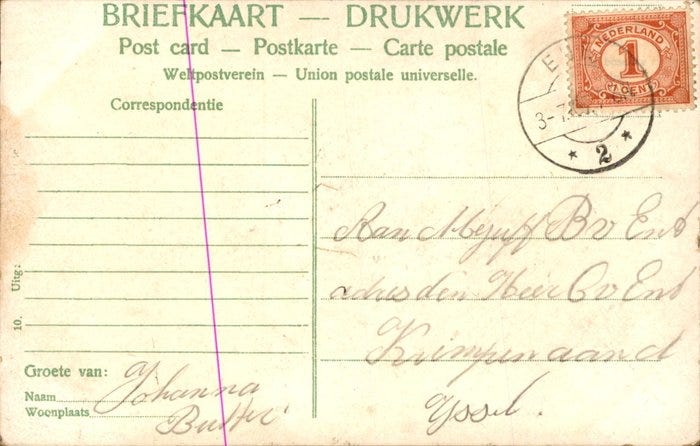 BRIEFKAART — DRUKWERK
Post card — Postkarte — Carte postale
Weltpostverein — Union postale universelle.
NEDERLAND
1
CENT
3-7
2
Correspondentie
Aan Mejuff B v Ent
adres den Heer C v Ent
Krimpen aan d
Yssel.
Uitg:
10.
Groete van:
Naam Johanna
Woonplaats